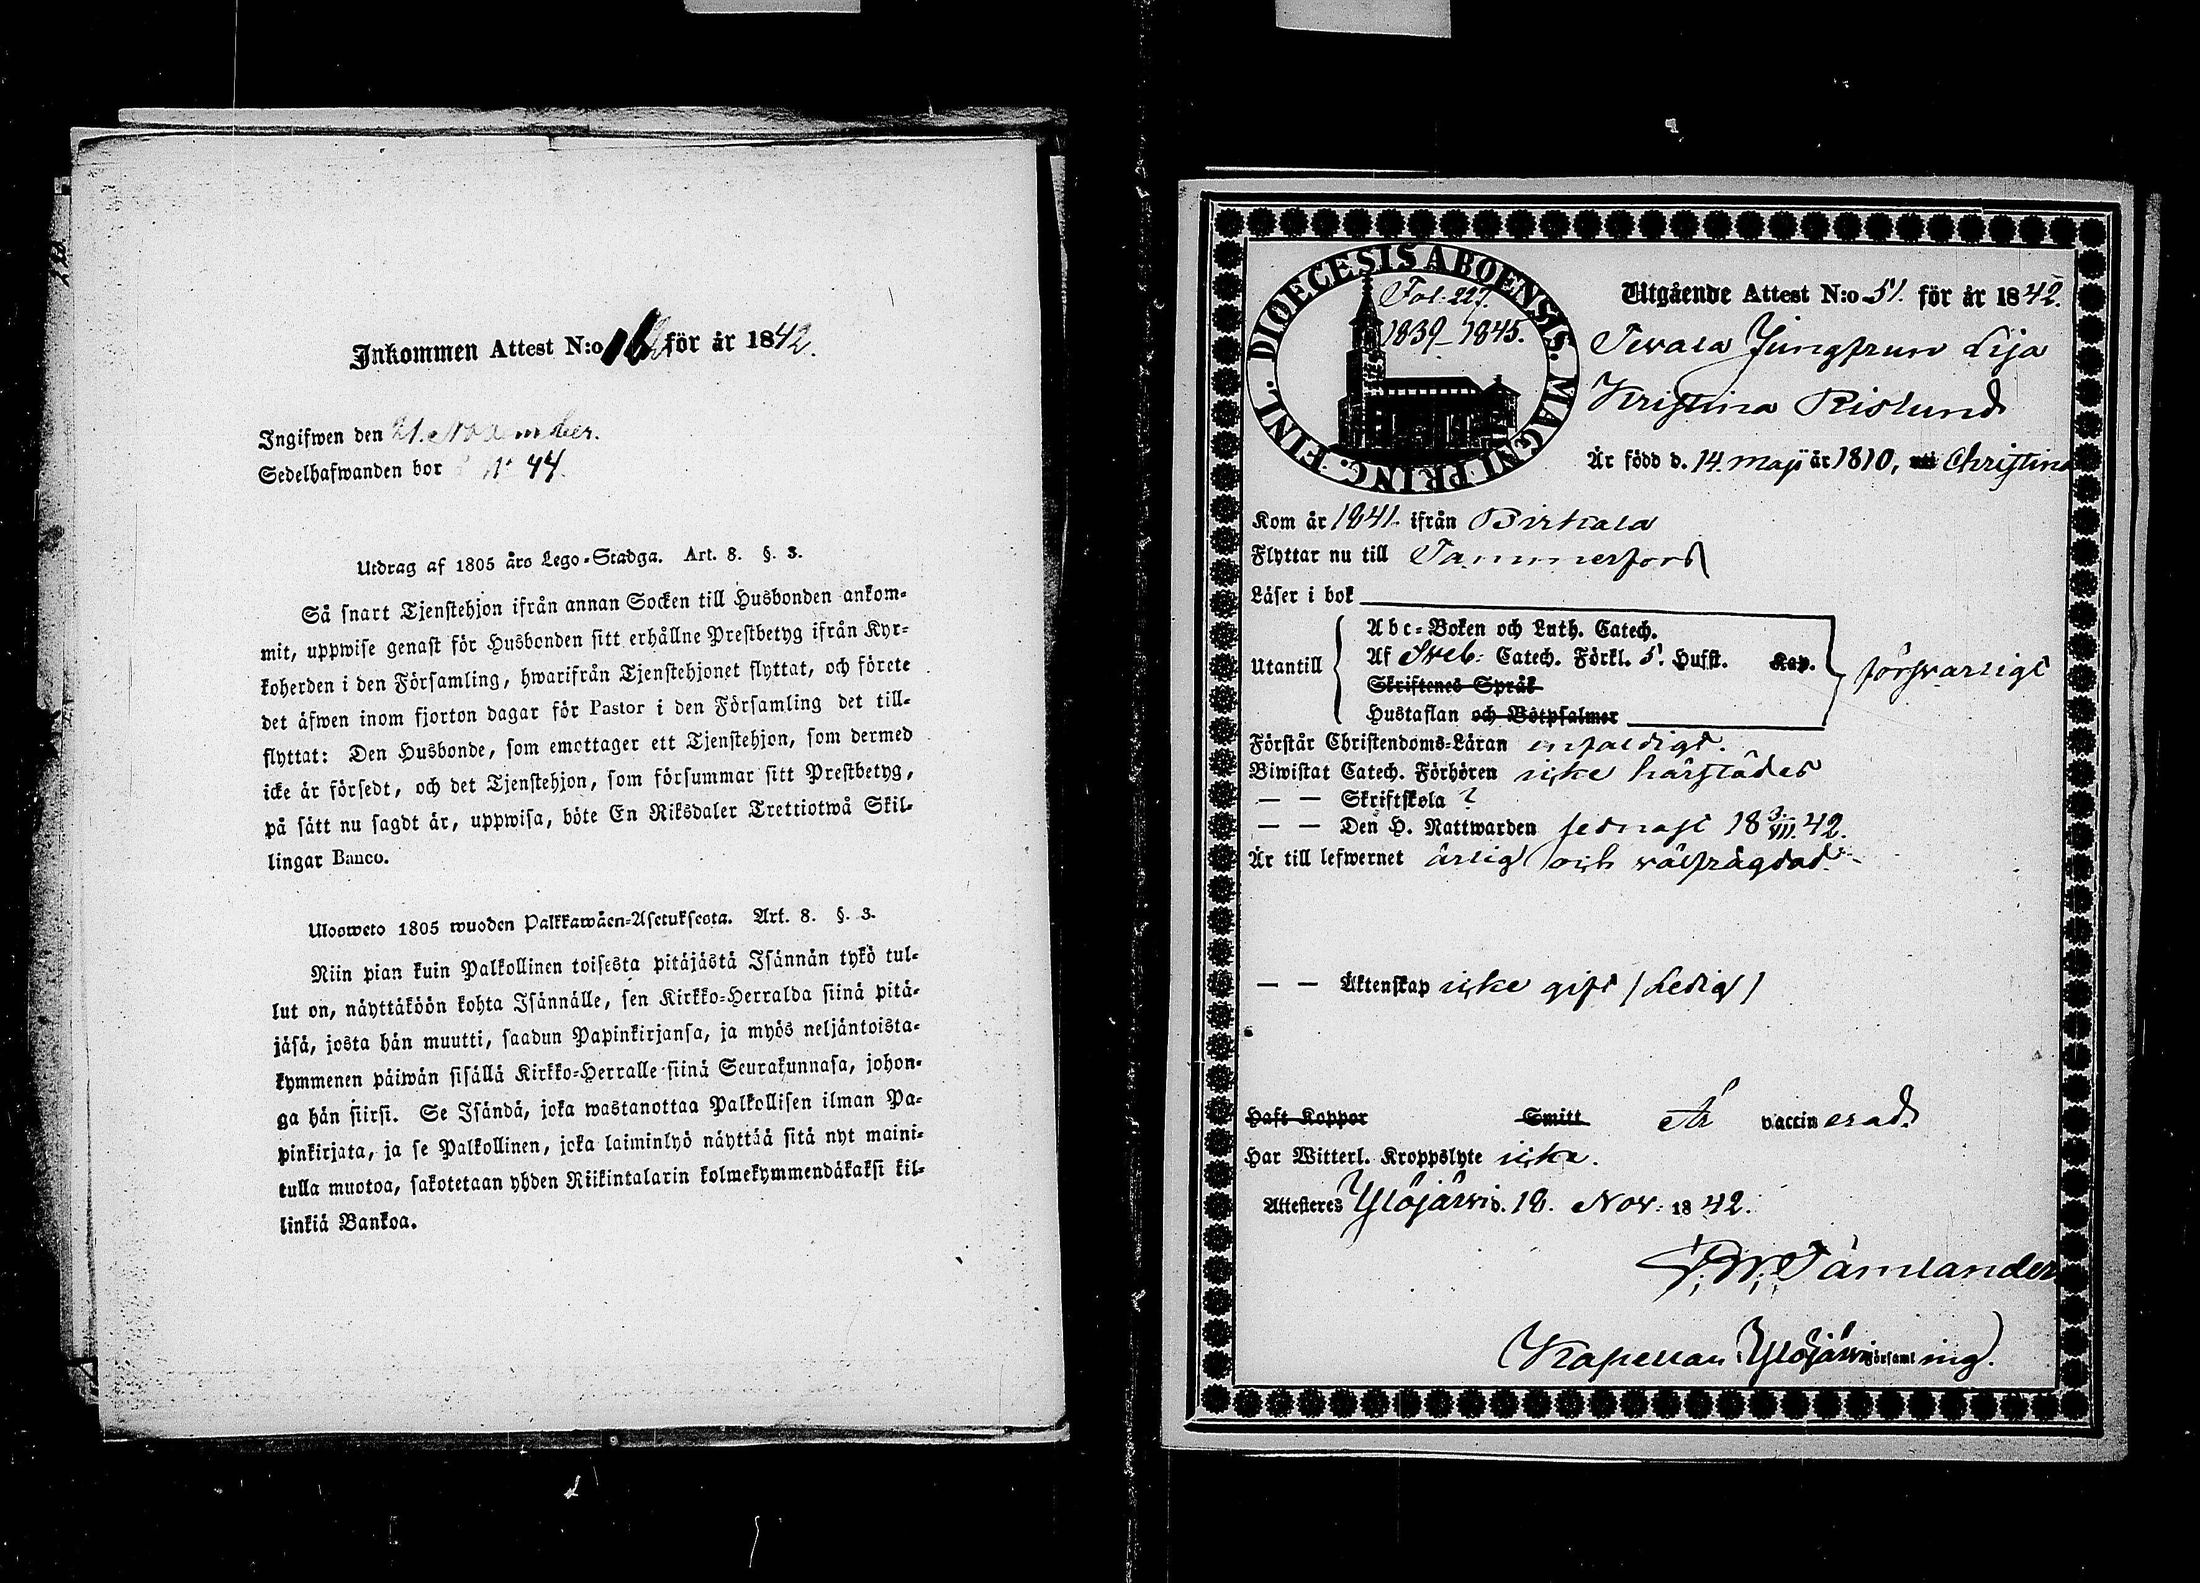 Inkommen Attest N:o för år 1842.
Ingifwen den 21. November.
Sedelhafwanden bor N: 44.
Utdrag af 1805 års Lego-Stadga. Art. 8. §. 3.
Så snart Tjenstehjon ifrån annan Socken till Husbonden ankom-
mit, uppwise genast för Husbonden sitt erhållne Prestbetyg ifrån Kyr-
koherden i den Församling, hwarifrån Tjenstehjonet flyttat, och förete
det äfwen inom fjorton dagar för Pastor i den Församling det till-
flyttat: Den Husbonde, som emottager ett Tjenstehjon, som dermed
icke är försedt, och det Tjenstehjon, som försummar sitt Prestbetyg,
på sätt nu sagdt är, uppwisa, böte En Riksdaler Trettiotwå Skil-
lingar Banco.
Ulosweto 1805 wuoden Palkkawäen-Asetuksesta. Art. 8. §. 3.
Niin pian kuin Palkollinen toisesta pitäjästä Isännän tykö tul-
lut on, näyttäköön kohta Isännälle, sen Kirkko-Herralda siinä pitä-
jäsä, josta hän muutti, saadun Papinkirjansa, ja myös neljäntoista-
kymmenen päiwän sisällä Kirkko-Herralle siinä Seurakunnasa, johon-
ga hän siirsi. Se Isändä, joka wastanottaa Palkollisen ilman Pa-
pinkirjata, ja se Palkollinen, joka laiminlyö näyttää sitä nyt maini-
tulla muotoa, sakotetaan yhden Riikintalarin kolmekymmendäkaksi kil-
linkiä Bankoa.
DIOECESIS ABOENSIS. MAGNI PRINC. FINL.
Fol. 227.
1839-1845.
Utgående Attest N:o 51. för år 1842.
Jungfrun Lisa
Kristina Rislund
Är född d. 14. maji år 1810, Christina
Kom år 1841. ifrån Birkala
Flyttar nu till Tammerfors
Läser i bok
Utantill
Abc-Boken och Luth. Catech.
Af Sveb: Catech. Förkl. 5. Hufst. Kap.
Skriftenes Språk
Hustaflan och Botpsalmer
försvarligt
Förstår Christendoms-Läran enfaldigt.
Biwistat Catech. Förhören icke härstädes
— — Skriftskola ?
— — Den H. Nattwarden sednast 18 3/VII. 42.
Är till lefwernet ärlig och välfrägdad.
— — Äktenskap icke gift (Ledig)
Haft Koppor Smitt Är vaccinerad.
Har Witterl. Kroppslyte icke.
Attesteres Ylöjärvi d. 18. Nov. 1842.
Tämlander
Kapellan i Ylöjärvi församling.